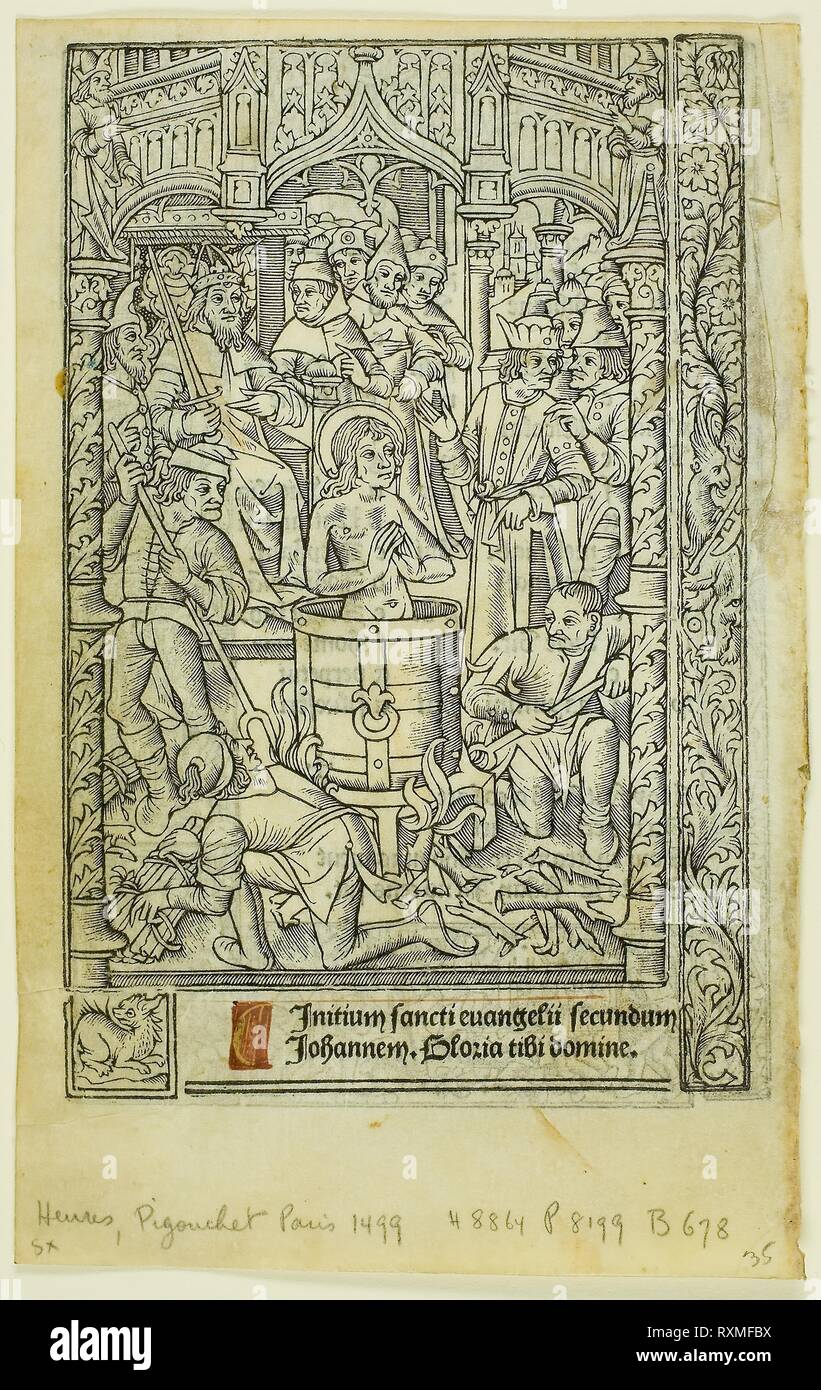 Initium sancti euangelii secundum
Johannem. Gloria tibi domine.
Heures, Pigouchet Paris 1499 H 8864 P 8199 B 678
sx
35
a alamy stock photo
alamy
Image ID: RXMFBX
www.alamy.com